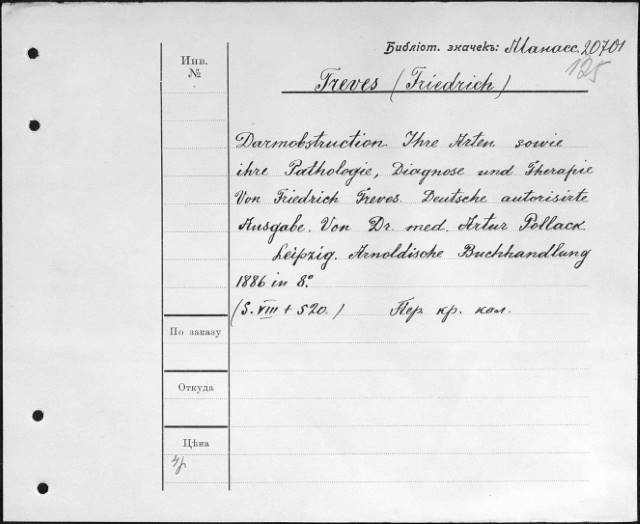 Библіот. значекъ: Манасс. 20701
125
Инв.
№
Treves (Friedrich)
Darmobstruction. Ihre Arten sowie
ihre Pathologie, Diagnose und Therapie
Von Friedrich Treves. Deutsche autorisirte
Ausgabe. Von Dr. med. Artur Pollack.
Leipzig. Arnoldische Buchhandlung
1886 in 8º.
(S. VIII + 520.) Пер. кр. кол.
По заказу
Откуда
Цѣна
4р